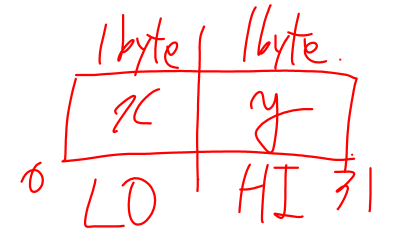 1byte 1byte.
x y
0 LO HI 31